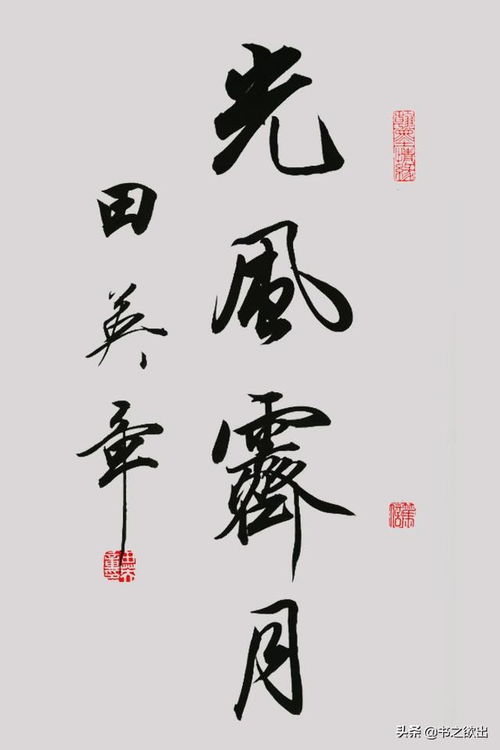 光風霽月
田英章
头条 @书之欲出